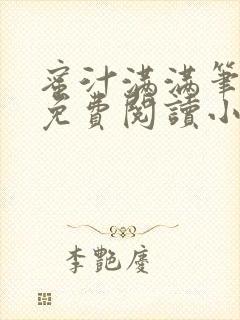 蜜汁满满筆
免費閱讀小
李艷慶